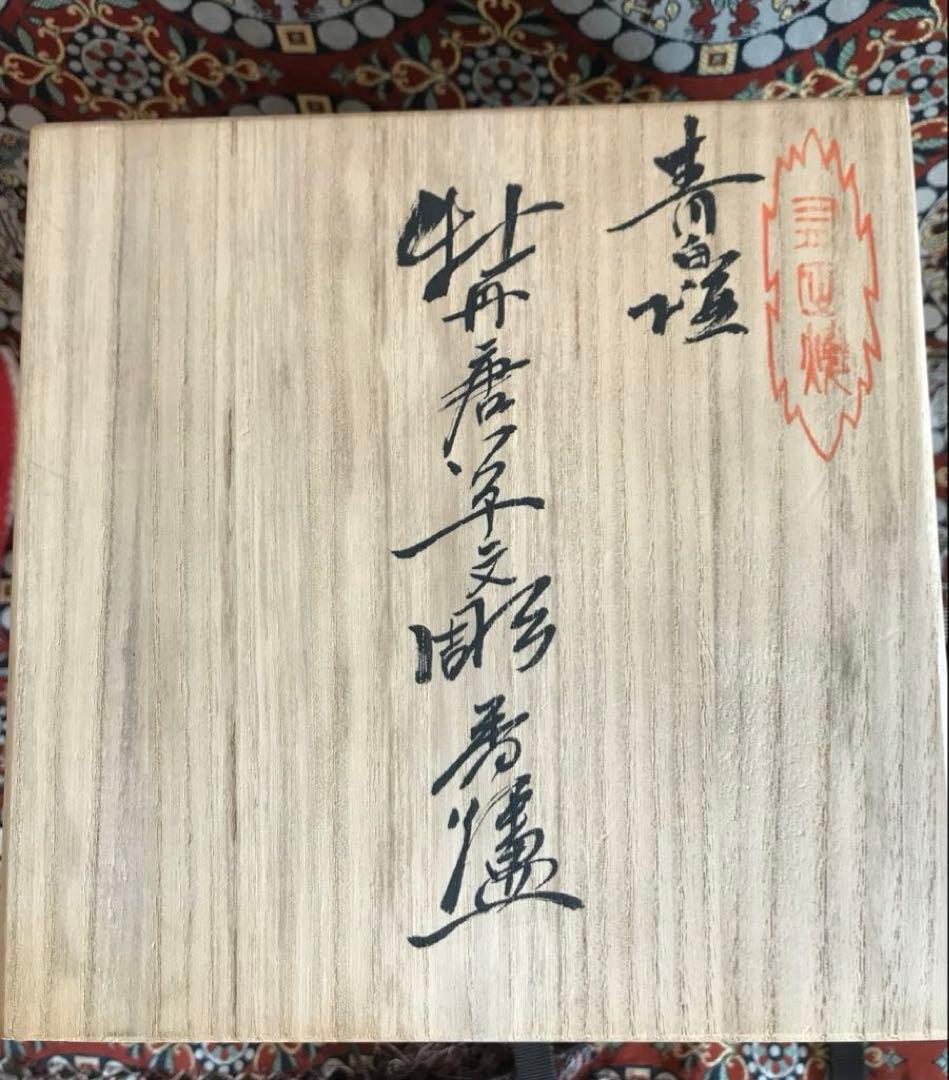 焼
青白磁
牡丹唐草文彫香爐